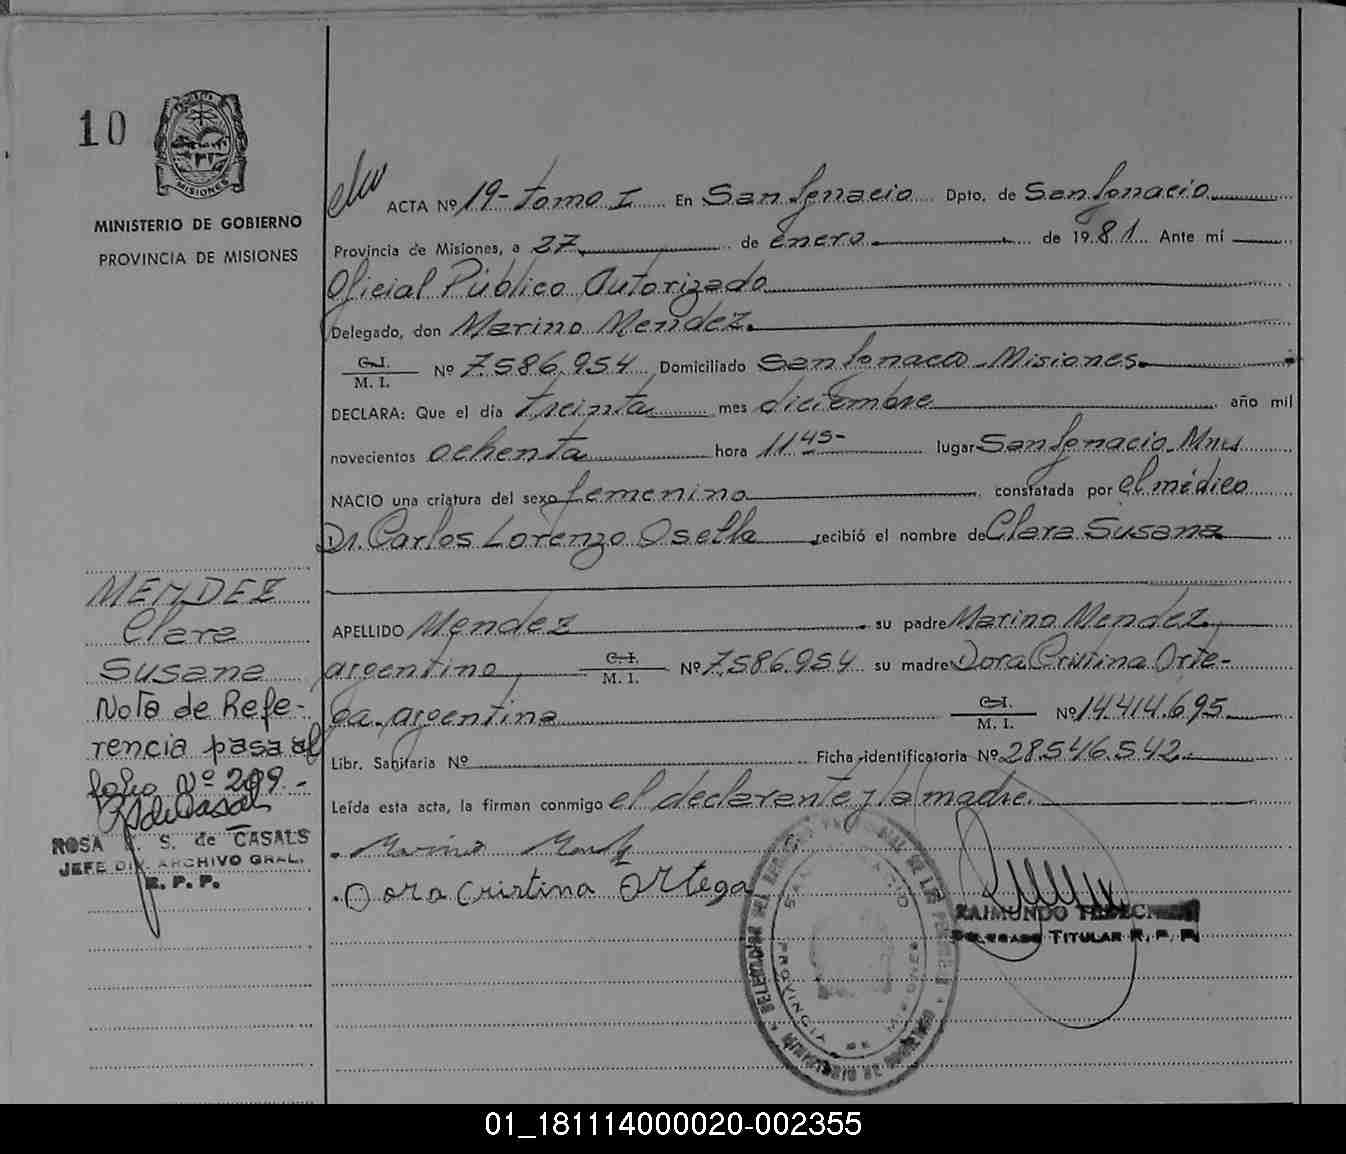 10
MISIONES
MINISTERIO DE GOBIERNO
PROVINCIA DE MISIONES
ACTA Nº 19- tomo I En San Ignacio Dpto. de San Ignacio
Provincia de Misiones, a 27 de enero de 1981 Ante mí
Oficial Público Autorizado
Delegado, don Marino Mendez.
C.I.
M. I. Nº 7.586.954 Domiciliado San Ignacio - Misiones
DECLARA: Que el día treinta mes diciembre año mil
novecientos ochenta hora 11 45- lugar San Ignacio Mnes
NACIO una criatura del sexo femenino constatada por el médico
Dr. Carlos Lorenzo Osella recibió el nombre de Clara Susana
APELLIDO Mendez su padre Marino Mendez
argentino C.I.
M. I. Nº 7.586.954 su madre Dora Cristina Orte-
ga argentina C.I.
M. I. Nº 14.414.695
Libr. Sanitaria Nº Ficha identificatoria Nº 28.546.542.
Leída esta acta, la firman conmigo el declarante y la madre.
Marino
Dora Cristina Ortega
RAIMUNDO
DELEGADO TITULAR R. P. P.
SAN IGNACIO
PROVINCIA DE MISIONES
MENDEZ
Clara
Susana
Nota de Refe-
rencia pasa al
folio Nº 209.-
ROSA S. de CASALS
JEFE DIV. ARCHIVO GRAL.
R. P. P.
01_181114000020-002355